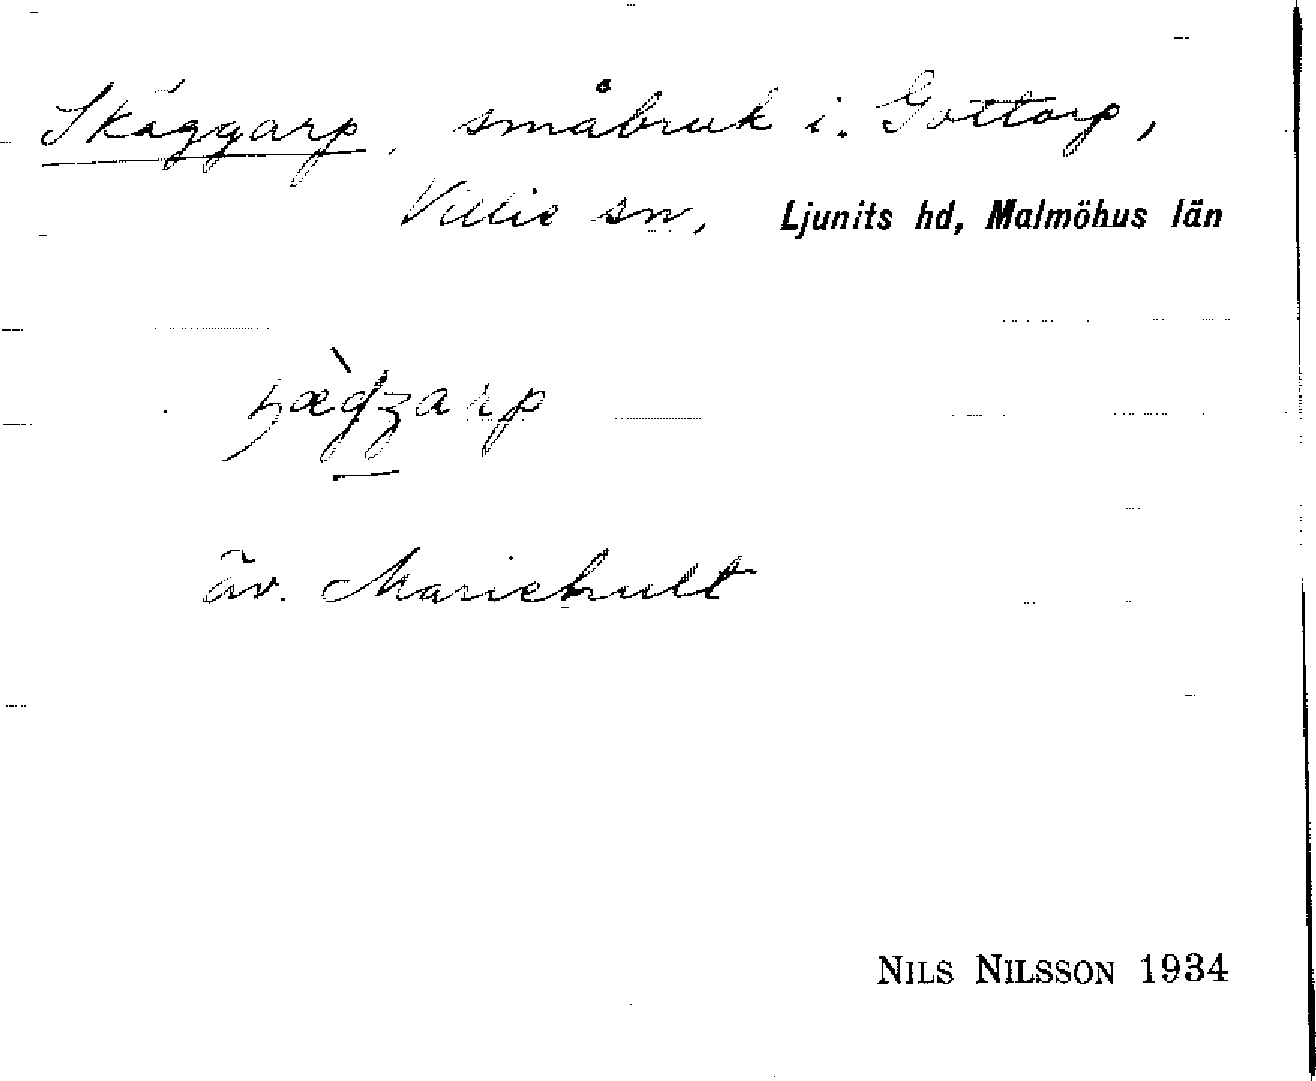 Skäggarp, småbruk i. Gottorp,
Villie sn, Ljunits hd, Malmöhus län
äv. Mariehult
NILS NILSSON 1934